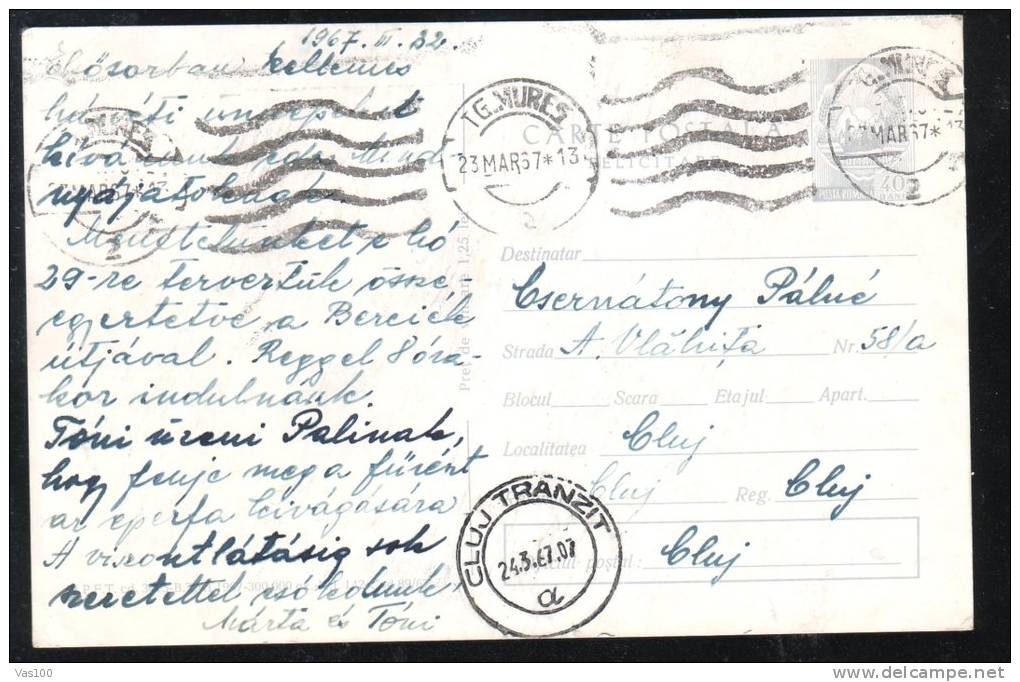 1967. III. 22.
Elősorban kellemes
húsvéti ünnepeket
kívánunk
nyájatoknak.
hó
29-re terveztük össze-
egyeztetve a Berciék
útjával. Reggel 8 óra-
kor indulnánk.
Tóni üzeni Palinak,
hogy fenje meg a fűrészt
az eperfa kivágására
A viszontlátásig sok
szeretettel csókolnak,
Márta és Tóni
TG. MUREȘ
23 MAR 67 * 13
2
CARTE POȘTALĂ
FELICITARE
TG. MUREȘ
MAR 67 * 13
2
40
POSTA ROMANA
MUREȘ
MAR 67 *
2
1,25 lei
Destinatar
Csernátony Pálné
Strada A. Vlăhița Nr. 58/a
Blocul Scara Etajul Apart.
Localitatea Cluj
Cluj Reg. Cluj
poștal: Cluj
CLUJ TRANZIT
24.3.67.07
α
Vas100
www.delcampe.net